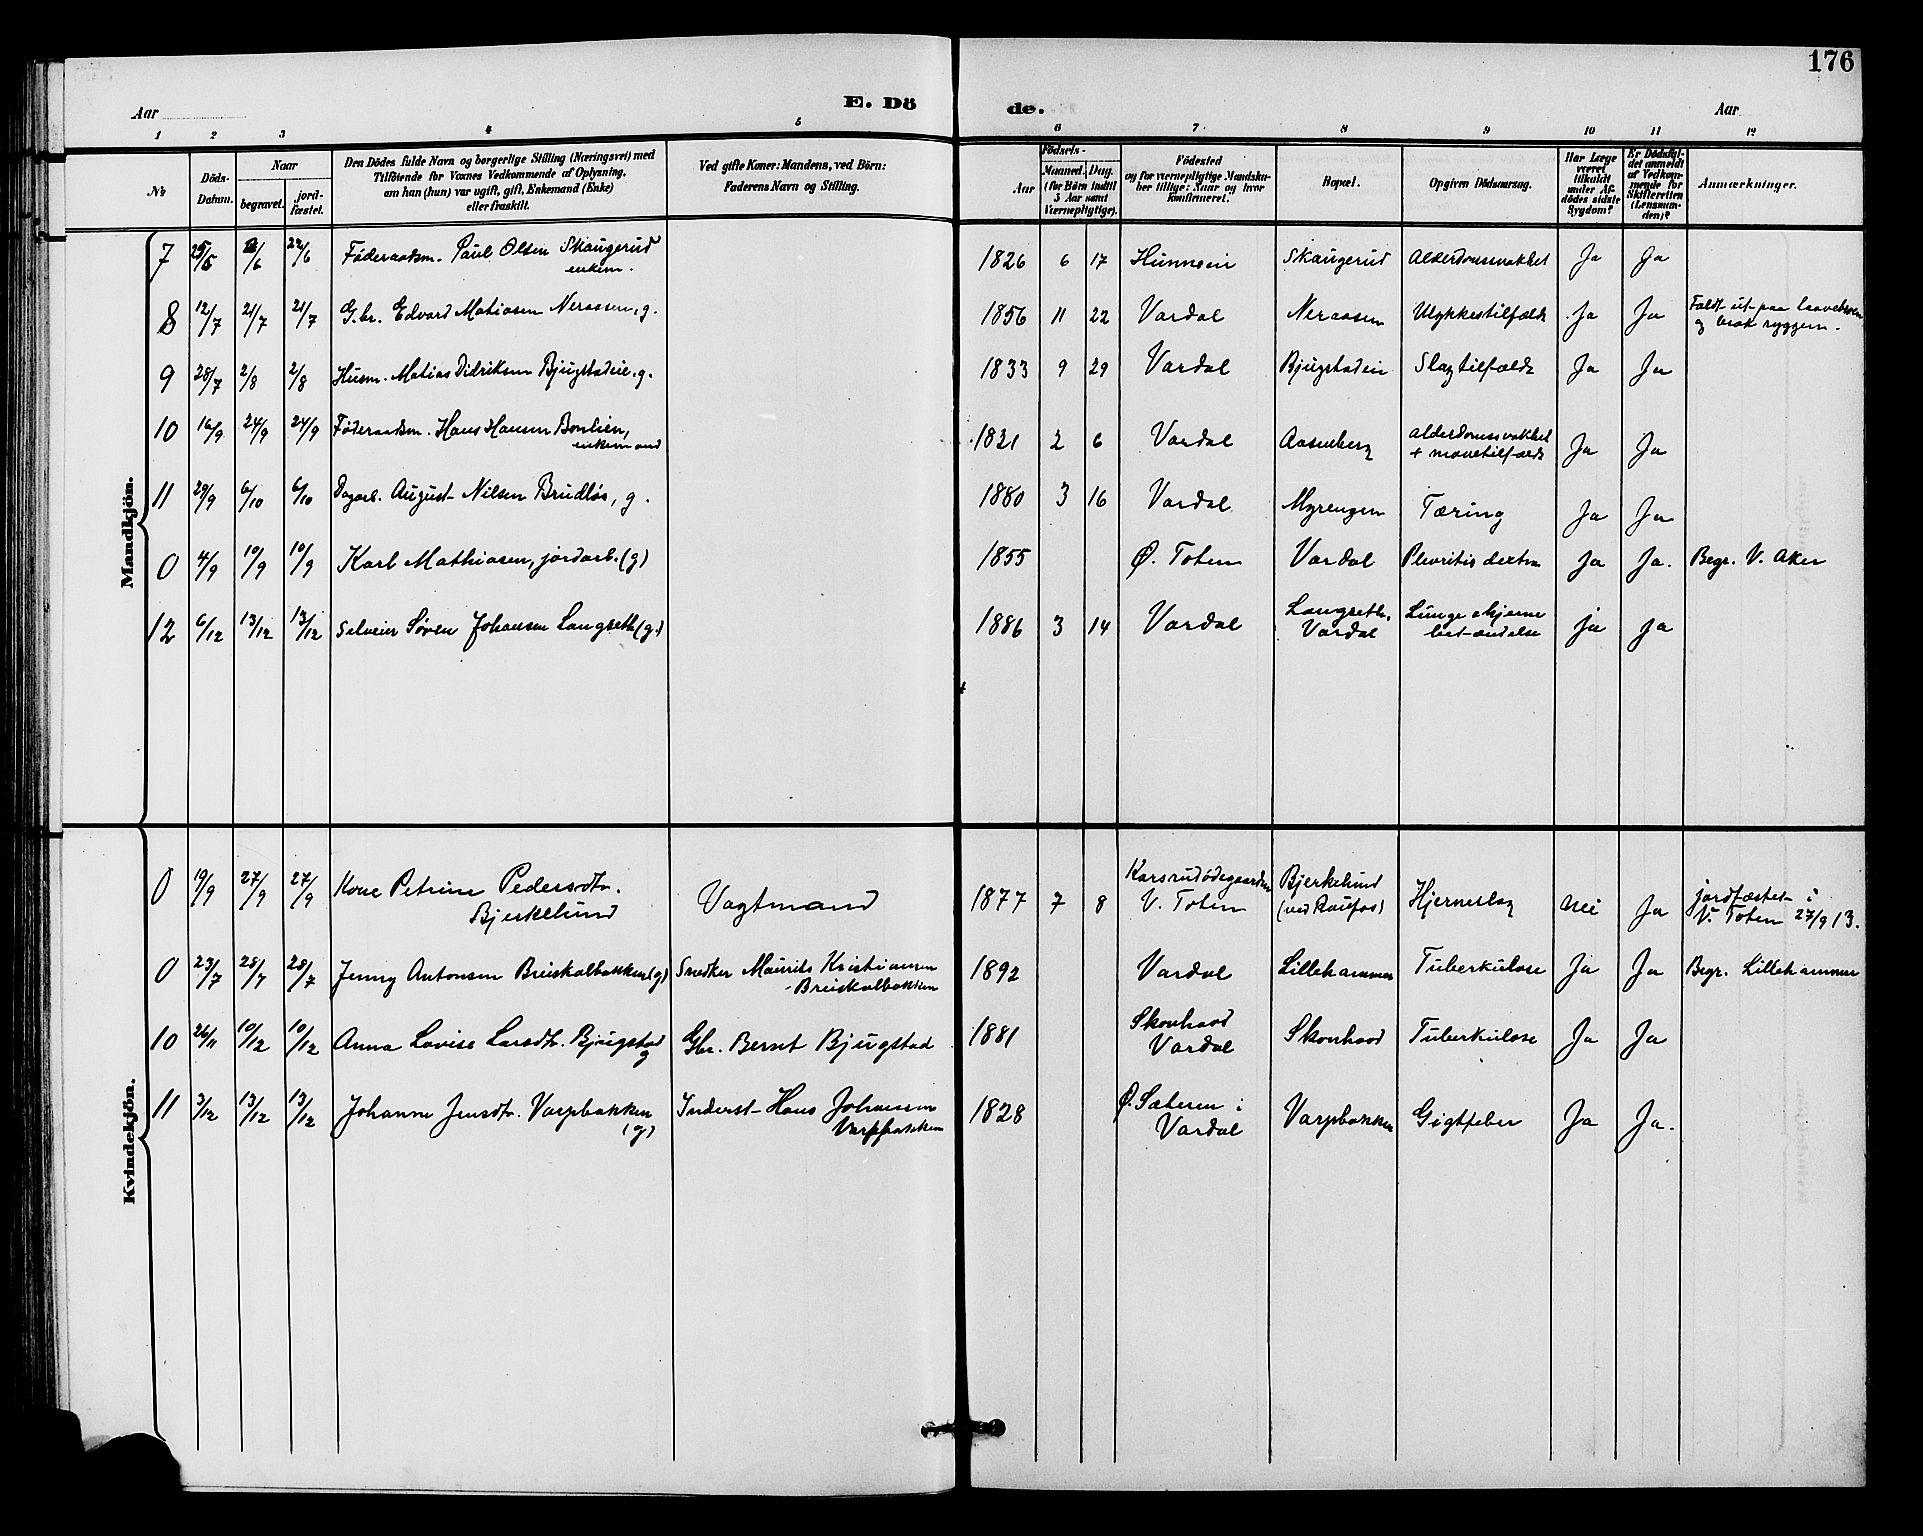 176
Aar
E. Dö
de.
Aar
1 2 3 4 5 6 7 8 9 10 11 12
No
Döds-Datum.
Naar
begravet.
jord-fæstet.
Den Dödes fulde Navn og borgerlige Stilling (Næringsvei) med
Tilföiende for Voxnes Vedkommende af Oplysning,
om han (hun) var ugift, gift, Enkemand (Enke)
eller fraskilt.
Ved gifte Koner: Mandens, ved Börn:
Faderens Navn og Stilling.
Födsels-
Aar
Maaned. Dag.
(for Börn indtil
5 Aar samt
Værnepligtige).
Födested
og for værnepligtige Mandska-
ber tillige: Naar og hvor
konfirmeret.
Bopæl.
Opgiven Dödsaarsag.
Har Læge
været
tilkaldt
under Af-
dödes sidste
Sygdom?
Er Dödsfal-
det anmeldt
af Vedkom-
mende for
Skifteretten
(Lensman-
den)?
Anmærkninger.
Mandkjön.
7 25/5 /6 22/6 Føderaadsm. Paul Olsen Skaugerud 1826 6 17 Hunnsein Skaugerud Alderdomssvakhet Ja Ja
enkem.
8 12/7 21/7 21/7 G.br. Edvard Matiasen Neraasen, g. 1856 11 22 Vardal Neraasen Ulykkestilfælde Ja Ja Faldt ut paa laavebroen
og brak ryggen.
9 28/7 2/8 2/8 Husm. Matias Didriksen Bjugstadeie, g. 1833 9 29 Vardal Bjugstadeie Slagtilfælde Ja Ja
10 16/9 24/9 24/9 Føderaadsm. Hans Hansen Bonlien, 1821 2 6 Vardal Aasenberg Alderdomssvakhet Ja Ja
enkemand + mavetilfælde
11 29/9 6/10 6/10 Dagarb. August Nilsen Brudløs, g. 1880 3 16 Vardal Myrengen Tæring Ja Ja
0 4/9 10/9 10/9 Karl Mathiasen, jordarb. (g) 1855 Ø. Toten Vardal Plevritis dextra Ja Ja. Begr. V. Aker
12 6/12 13/12 13/12 Selveier Søren Johansen Langseth (g.) 1886 3 14 Vardal Langseth, Lunge & hjerne ja ja
Vardal betændelse
Kvindekjön.
0 19/9 27/9 27/9 Kone Petrine Pedersdtr. Vagtmand 1877 7 8 Karsrudødegaarden Bjerkelund Hjerneslag Nei Ja jordfæstet i
Bjerkelund V. Toten (ved Raufos) V. Toten 27/9 13.
0 23/7 28/7 28/7 Jenny Antonsen Breiskalbakken (g) Snedker Maurits Kristiansen 1892 Vardal Lillehammer Tuberkulose Ja Ja Begr. Lillehammer
Breiskalbakken
10 26/11 10/12 10/12 Anna Lovise Larsdtr. Bjugstad Gbr. Bernt Bjugstad 1881 Skonhovd Skonhovd Tuberkulose Ja Ja
g Vardal
11 3/12 13/12 13/12 Johanne Jensdtr. Varpbakken Inderst Hans Johansen 1828 Ø. Sæteren i Varpbakken Gigtfeber Ja Ja.
(g) Varpbakken Vardal